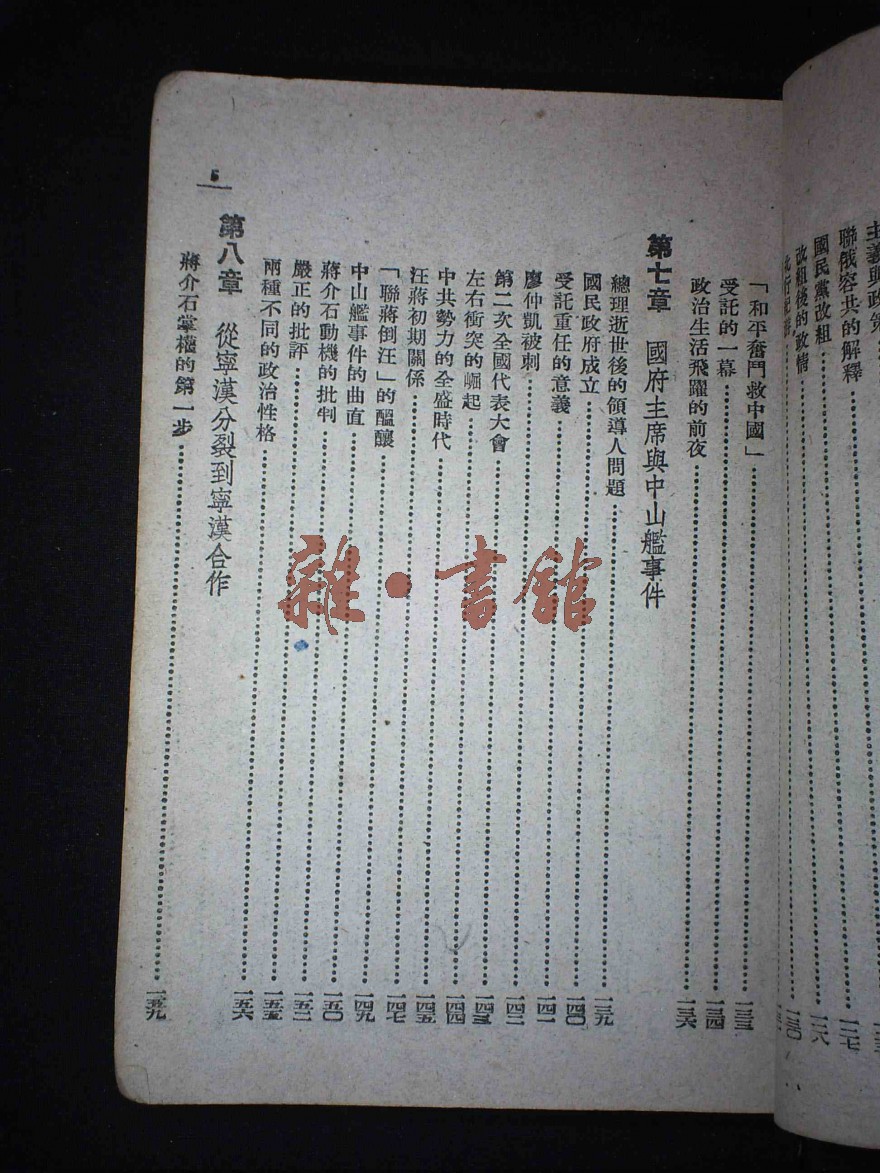 主義與政策
聯俄容共的解釋……一二七
國民黨改組……一二八
改組後的政情……一三〇
「和平奮鬥救中國」……一三三
受託的一幕……一三四
政治生活飛躍的前夜……一三六
第七章 國府主席與中山艦事件
總理逝世後的領導人問題……一三九
國民政府成立……一四〇
受託重任的意義……一四一
廖仲凱被刺……一四二
第二次全國代表大會……一四三
左右衝突的崛起……一四四
中共勢力的全盛時代……一四五
汪蔣初期關係……一四七
「聯蔣倒汪」的醞釀……一四九
中山艦事件的曲直……一五〇
蔣介石動機的批判……一五二
嚴正的批評……一五五
兩種不同的政治性格……一五六
第八章 從寧漢分裂到寧漢合作
蔣介石掌權的第一步……一五九
5
雜·書館